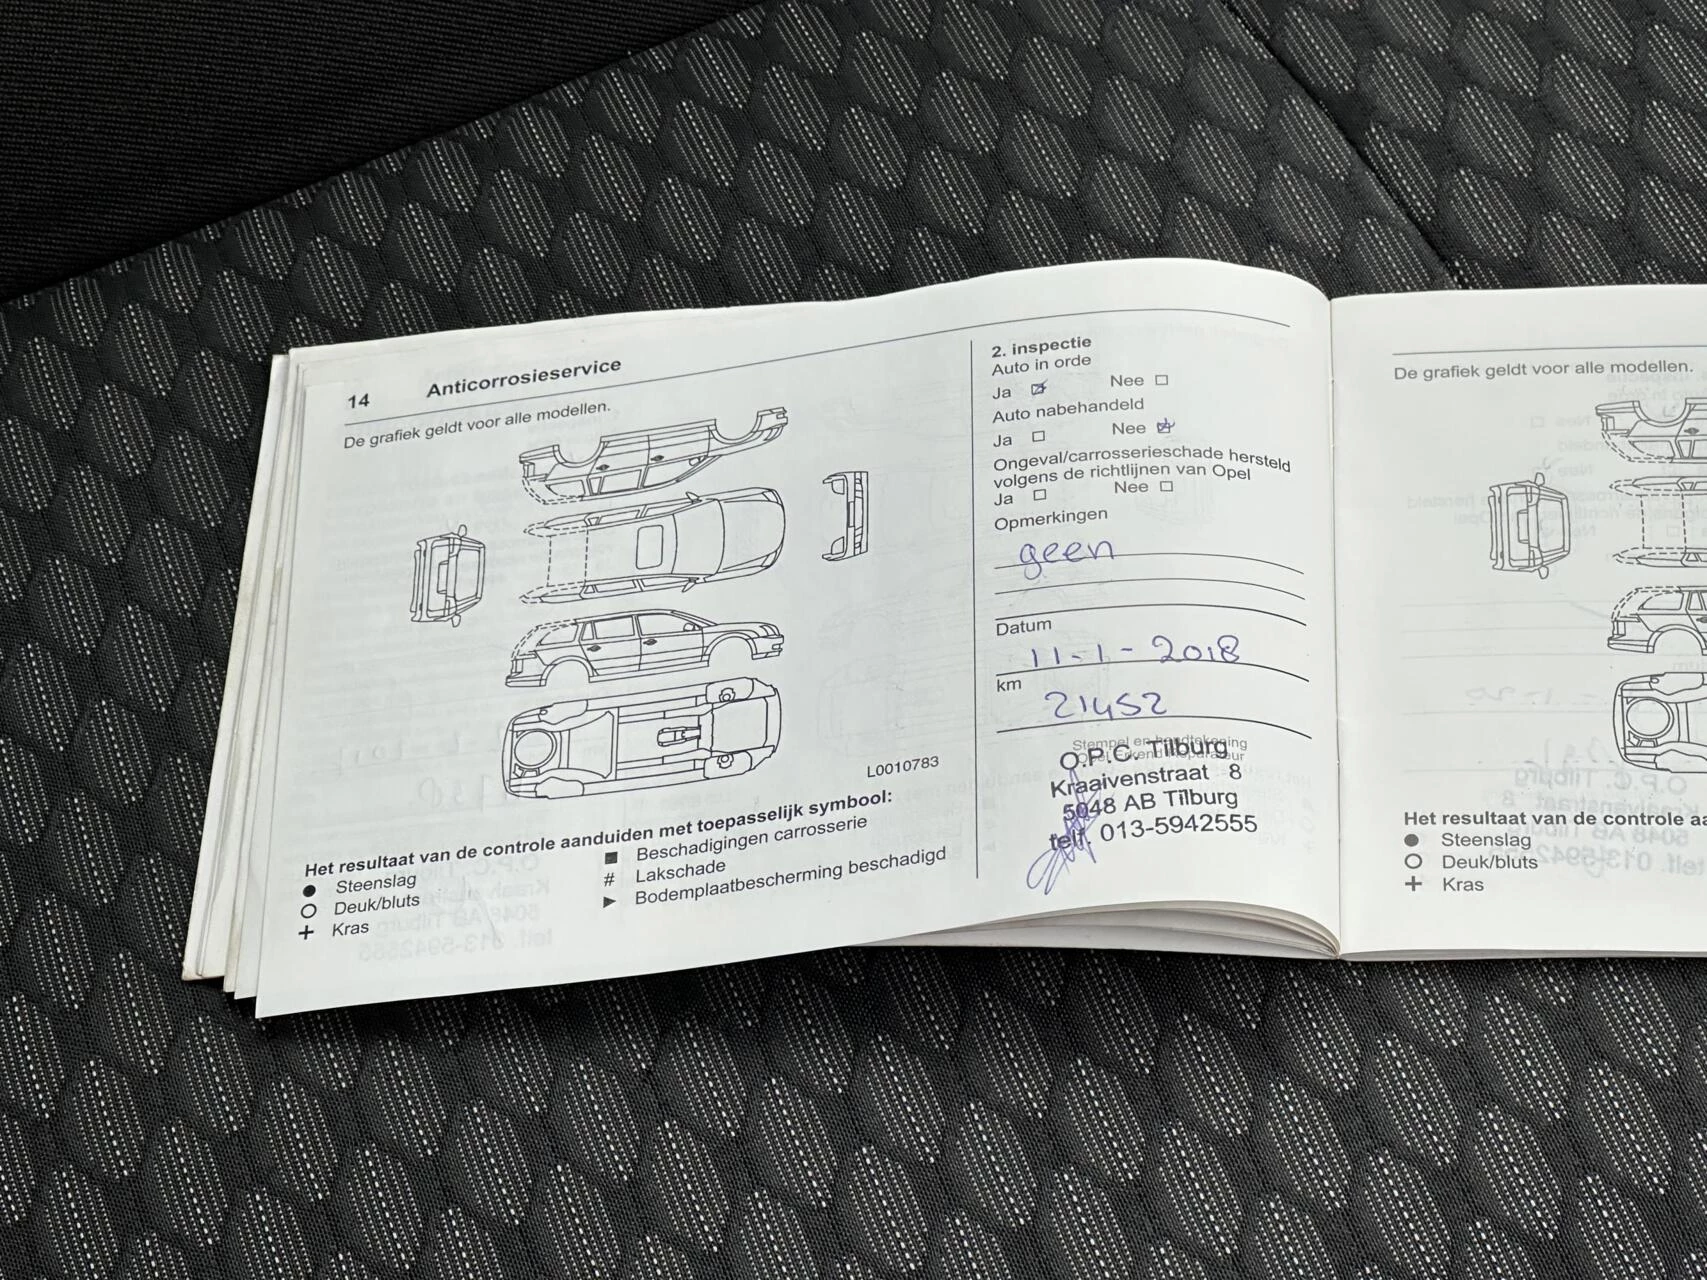 14 Anticorrosieservice
De grafiek geldt voor alle modellen.
L0010783
Het resultaat van de controle aanduiden met toepasselijk symbool:
● Steenslag
○ Deuk/bluts
+ Kras
■ Beschadigingen carrosserie
# Lakschade
► Bodemplaatbescherming beschadigd
2. inspectie
Auto in orde
Ja Nee
Auto nabehandeld
Ja Nee
Ongeval/carrosserieschade hersteld
volgens de richtlijnen van Opel
Ja Nee
Opmerkingen
geen
Datum
11-1-2018
km
21452
Stempel en handtekening
O.P.C. Tilburg
Kraaivenstraat 8
5048 AB Tilburg
telf. 013-5942555
De grafiek geldt voor alle modellen.
Het resultaat van de controle
● Steenslag
○ Deuk/bluts
+ Kras